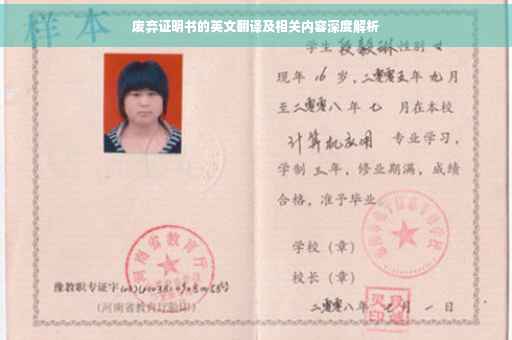 废弃证明书的英文翻译及相关内容深度解析
样本
学生段毅琳性别女
现年 16 岁,二零零五年九月
至二零零八年七 月在本校
计算机应用 专业学习,
学制三年,修业期满,成绩
合格,准予毕业。
学校(章)
校长(章)
二零零八年七月一日
河南省教育厅
豫教职专证字
(河南省教育厅验印)